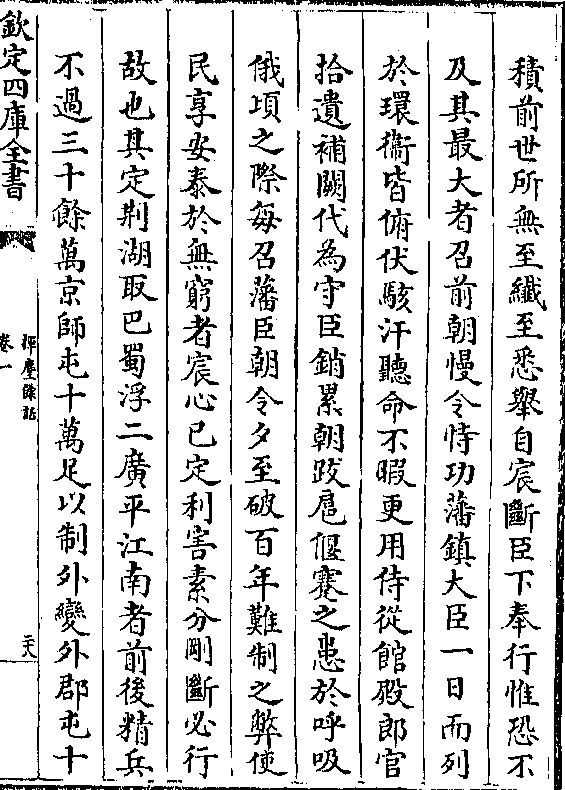 積前世所無至纎至悉舉自宸斷臣下奉行惟恐不
及其最大者召前朝慢令恃功藩鎮大臣一日而列
於環衞皆俯伏駭汗聽命不暇更用侍從館殿郎官
拾遺補闕代為守臣銷累朝跋扈偃蹇之患於呼吸
俄頃之際每召藩臣朝令夕至破百年難制之弊使
民享安泰於無窮者宸心已定利害素分剛斷必行
故也其定荆湖取巴蜀浮二廣平江南者前後精兵
不過三十餘萬京師屯十萬足以制外變外郡屯十
欽定四庫全書
揮麈餘話
卷一
二六